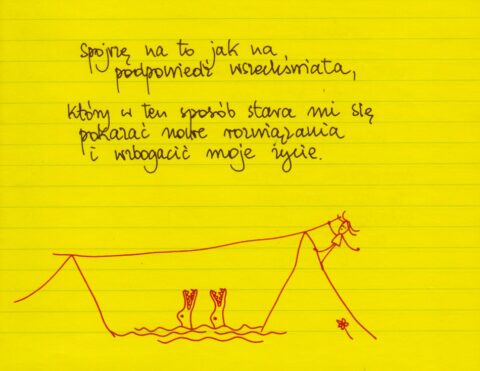 Spojrzę na to jak na
podpowiedź wszechświata,
który w ten sposób stara mi się
pokazać nowe rozwiązania
i wzbogacić moje życie.